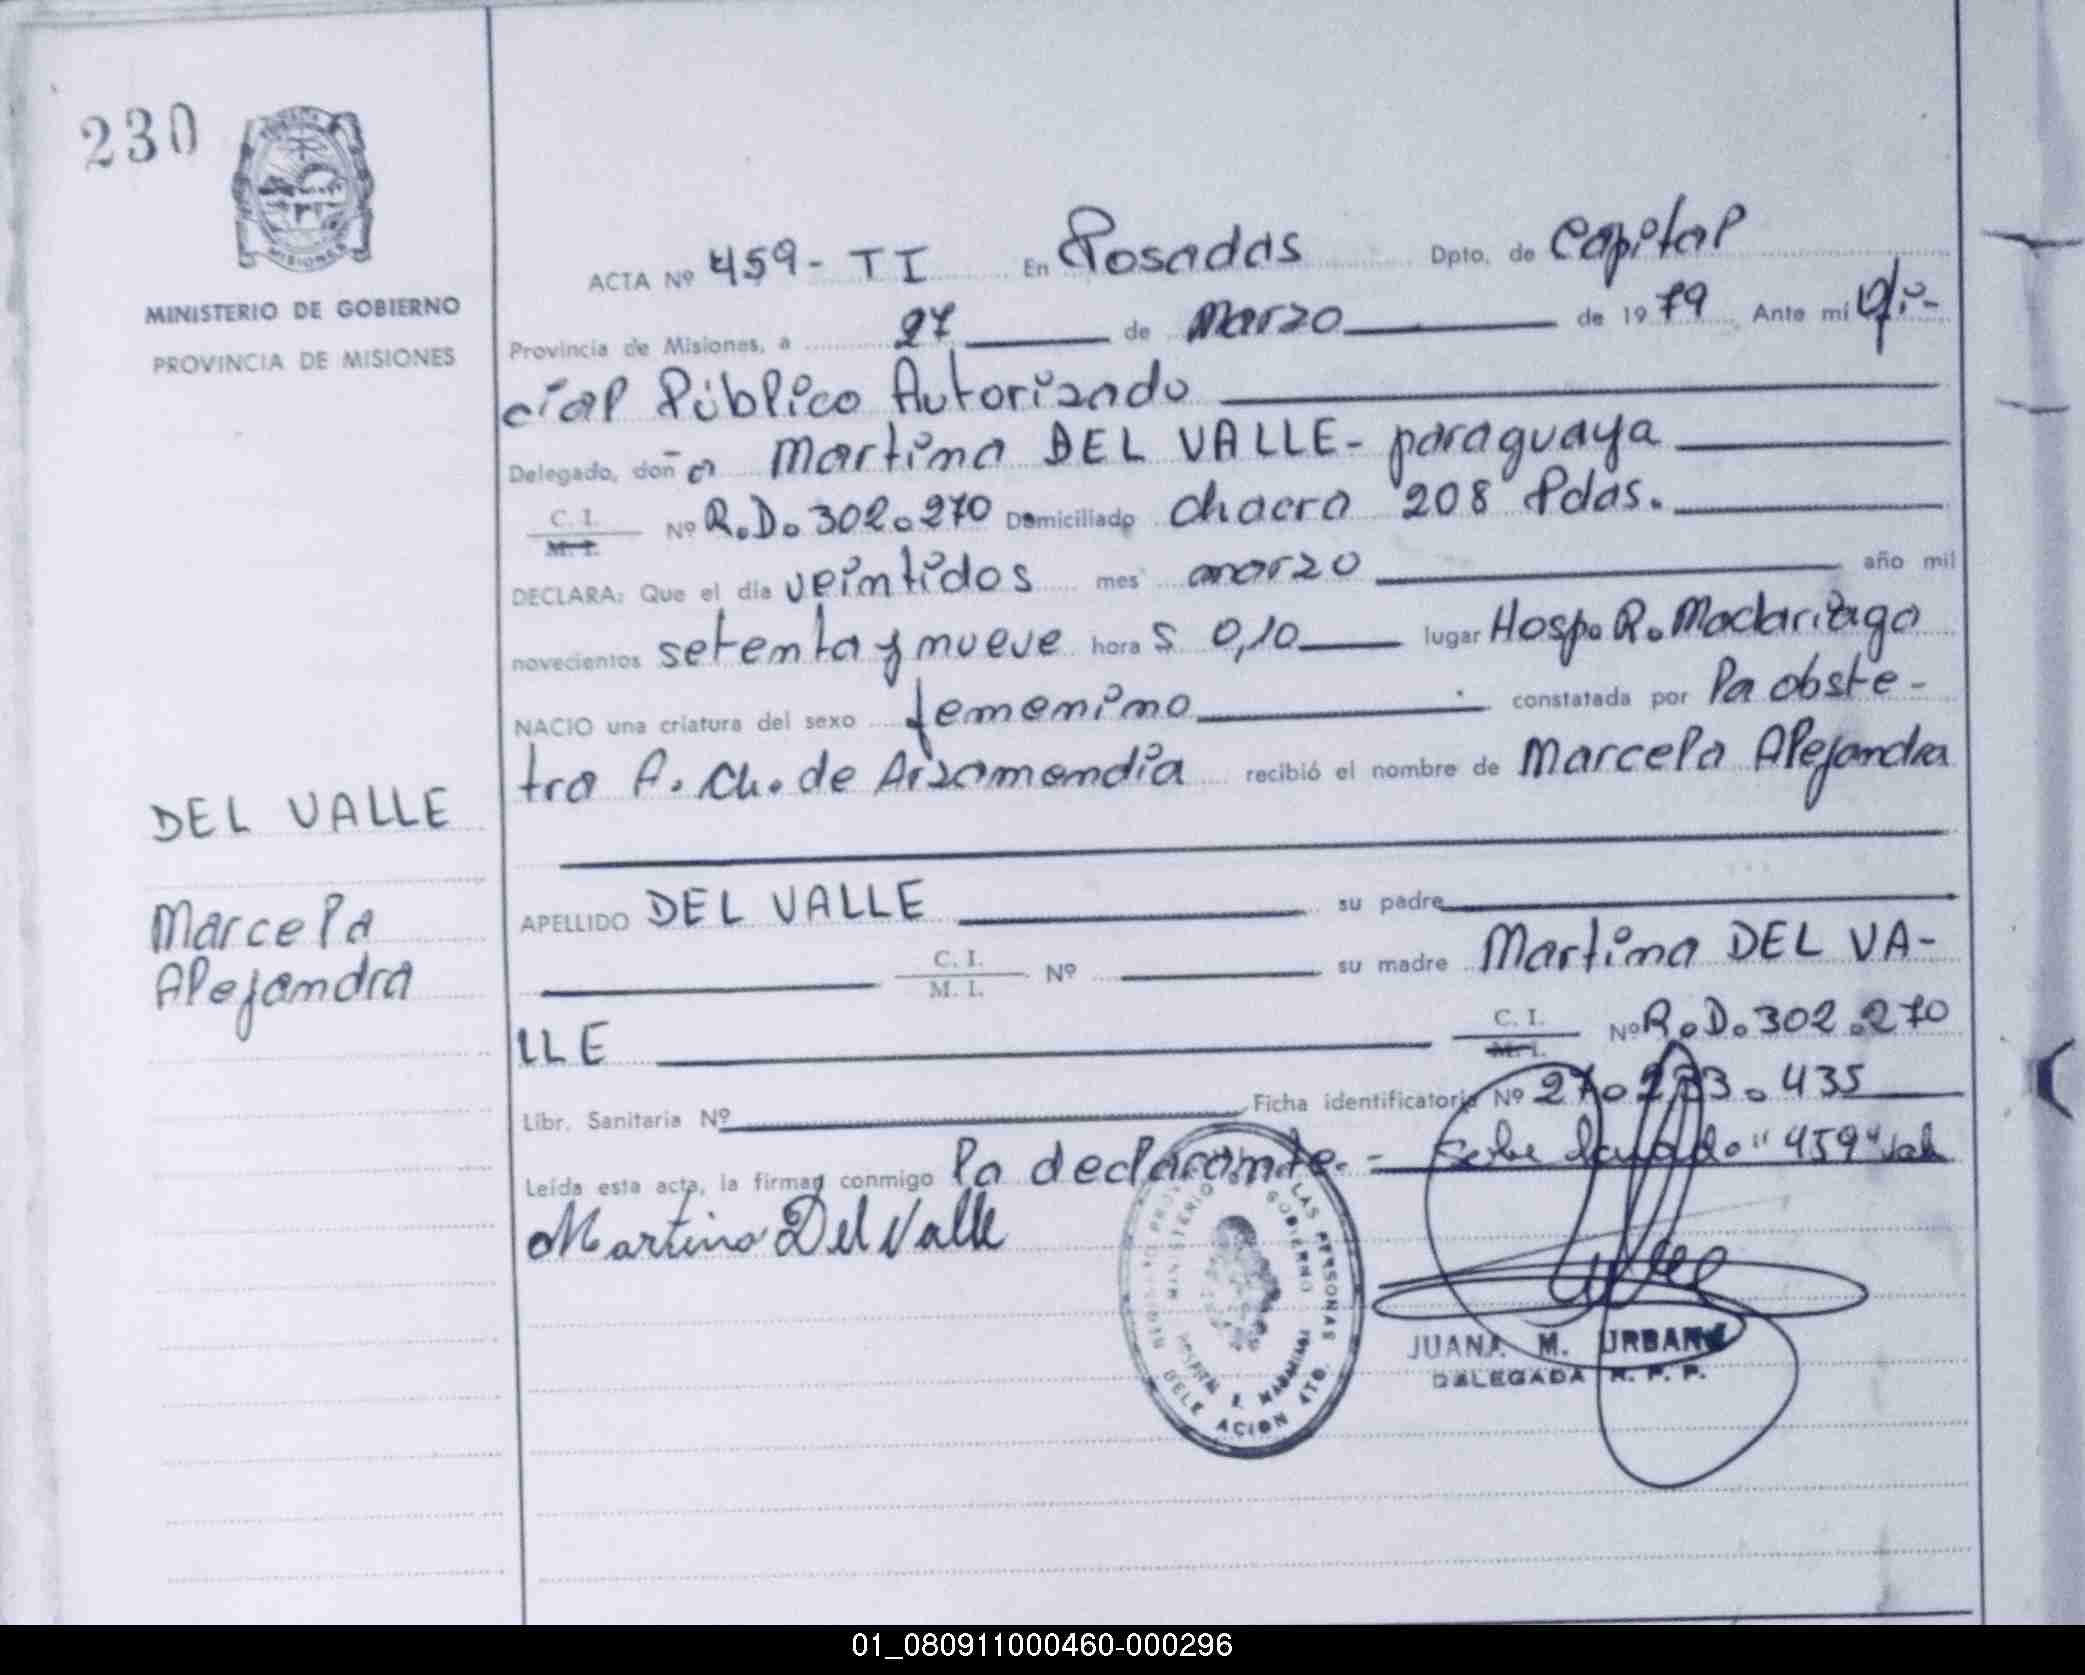 230
MISIONES
MINISTERIO DE GOBIERNO
PROVINCIA DE MISIONES
ACTA Nº 459- TI En Posadas Dpto. de Capital
Provincia de Misiones, a 27 de Marzo de 1979 Ante mí Ofi-
cial Público Autorizado
Delegado, doña Martina DEL VALLE- paraguaya
C. I. M. I. Nº R.D. 302.270 Domiciliado chacra 208 Pdas.
DECLARA: Que el día veintidos mes marzo año mil
novecientos setenta y nueve hora s 0,10 lugar Hosp. R. Madariaga
NACIO una criatura del sexo femenino constatada por la obste-
tra A. Ch. de Arzamendia recibió el nombre de Marcela Alejandra
DEL VALLE
Marcela
Alejandra
APELLIDO DEL VALLE su padre
C. I. M. I. Nº su madre Martina DEL VA-
LLE C. I. M. I. Nº R.D. 302.270
Libr. Sanitaria Nº Ficha identificatoria Nº 27.233.435
Leída esta acta, la firman conmigo la declarante.- Sobre lavado "459" vale
Martina Del Valle
LAS PERSONAS
MINISTERIO GOBIERNO
DELEGACION 4TO.
JUANA M. URBAN
DELEGADA R. P. P.
01_080911000460-000296